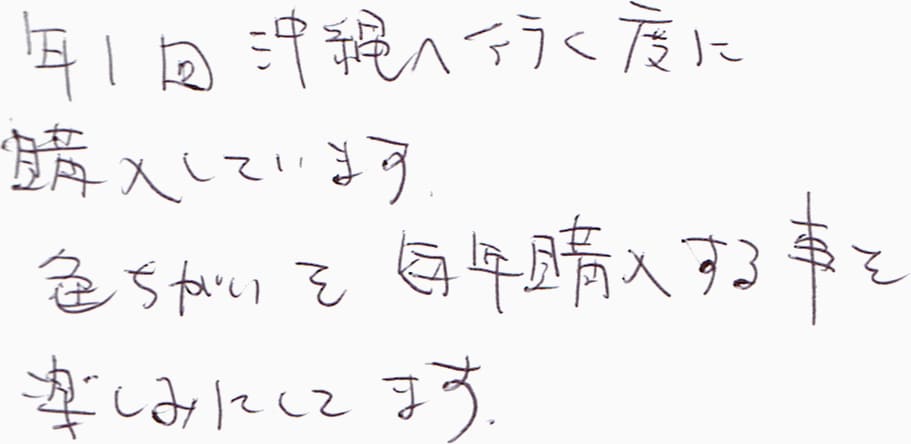 年1回沖縄へ行く度に
購入しています.
色ちがいを毎年購入する事を
楽しみにしてます.